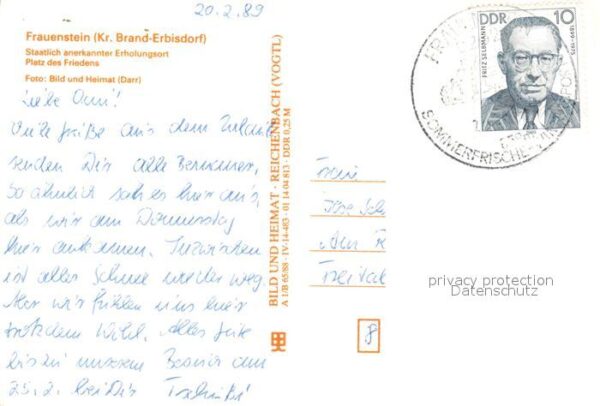 20.2.89
Frauenstein (Kr. Brand-Erbisdorf)
Staatlich anerkannter Erholungsort
Platz des Friedens
Foto: Bild und Heimat (Darr)
Liebe Omi!
Viele Grüße aus dem Urlaub
senden Dir alle
So ähnlich sah es hier aus,
als wir am Donnerstag
hier ankamen. Inzwischen
ist aller Schnee wieder weg.
Aber wir fühlen uns hier
trotzdem wohl. Alles Gute
bis zu unserem Besuch am
25.2. bei Dir
BILD UND HEIMAT · REICHENBACH (VOGTL)
A 1/B 65/88 · IV-14-483 · 01 14 04 813 · DDR 0,25 M
DDR 10
FRITZ SELBMANN
1899-1975
SOMMERFRISCHE
Frau
Freital
privacy protection
Datenschutz